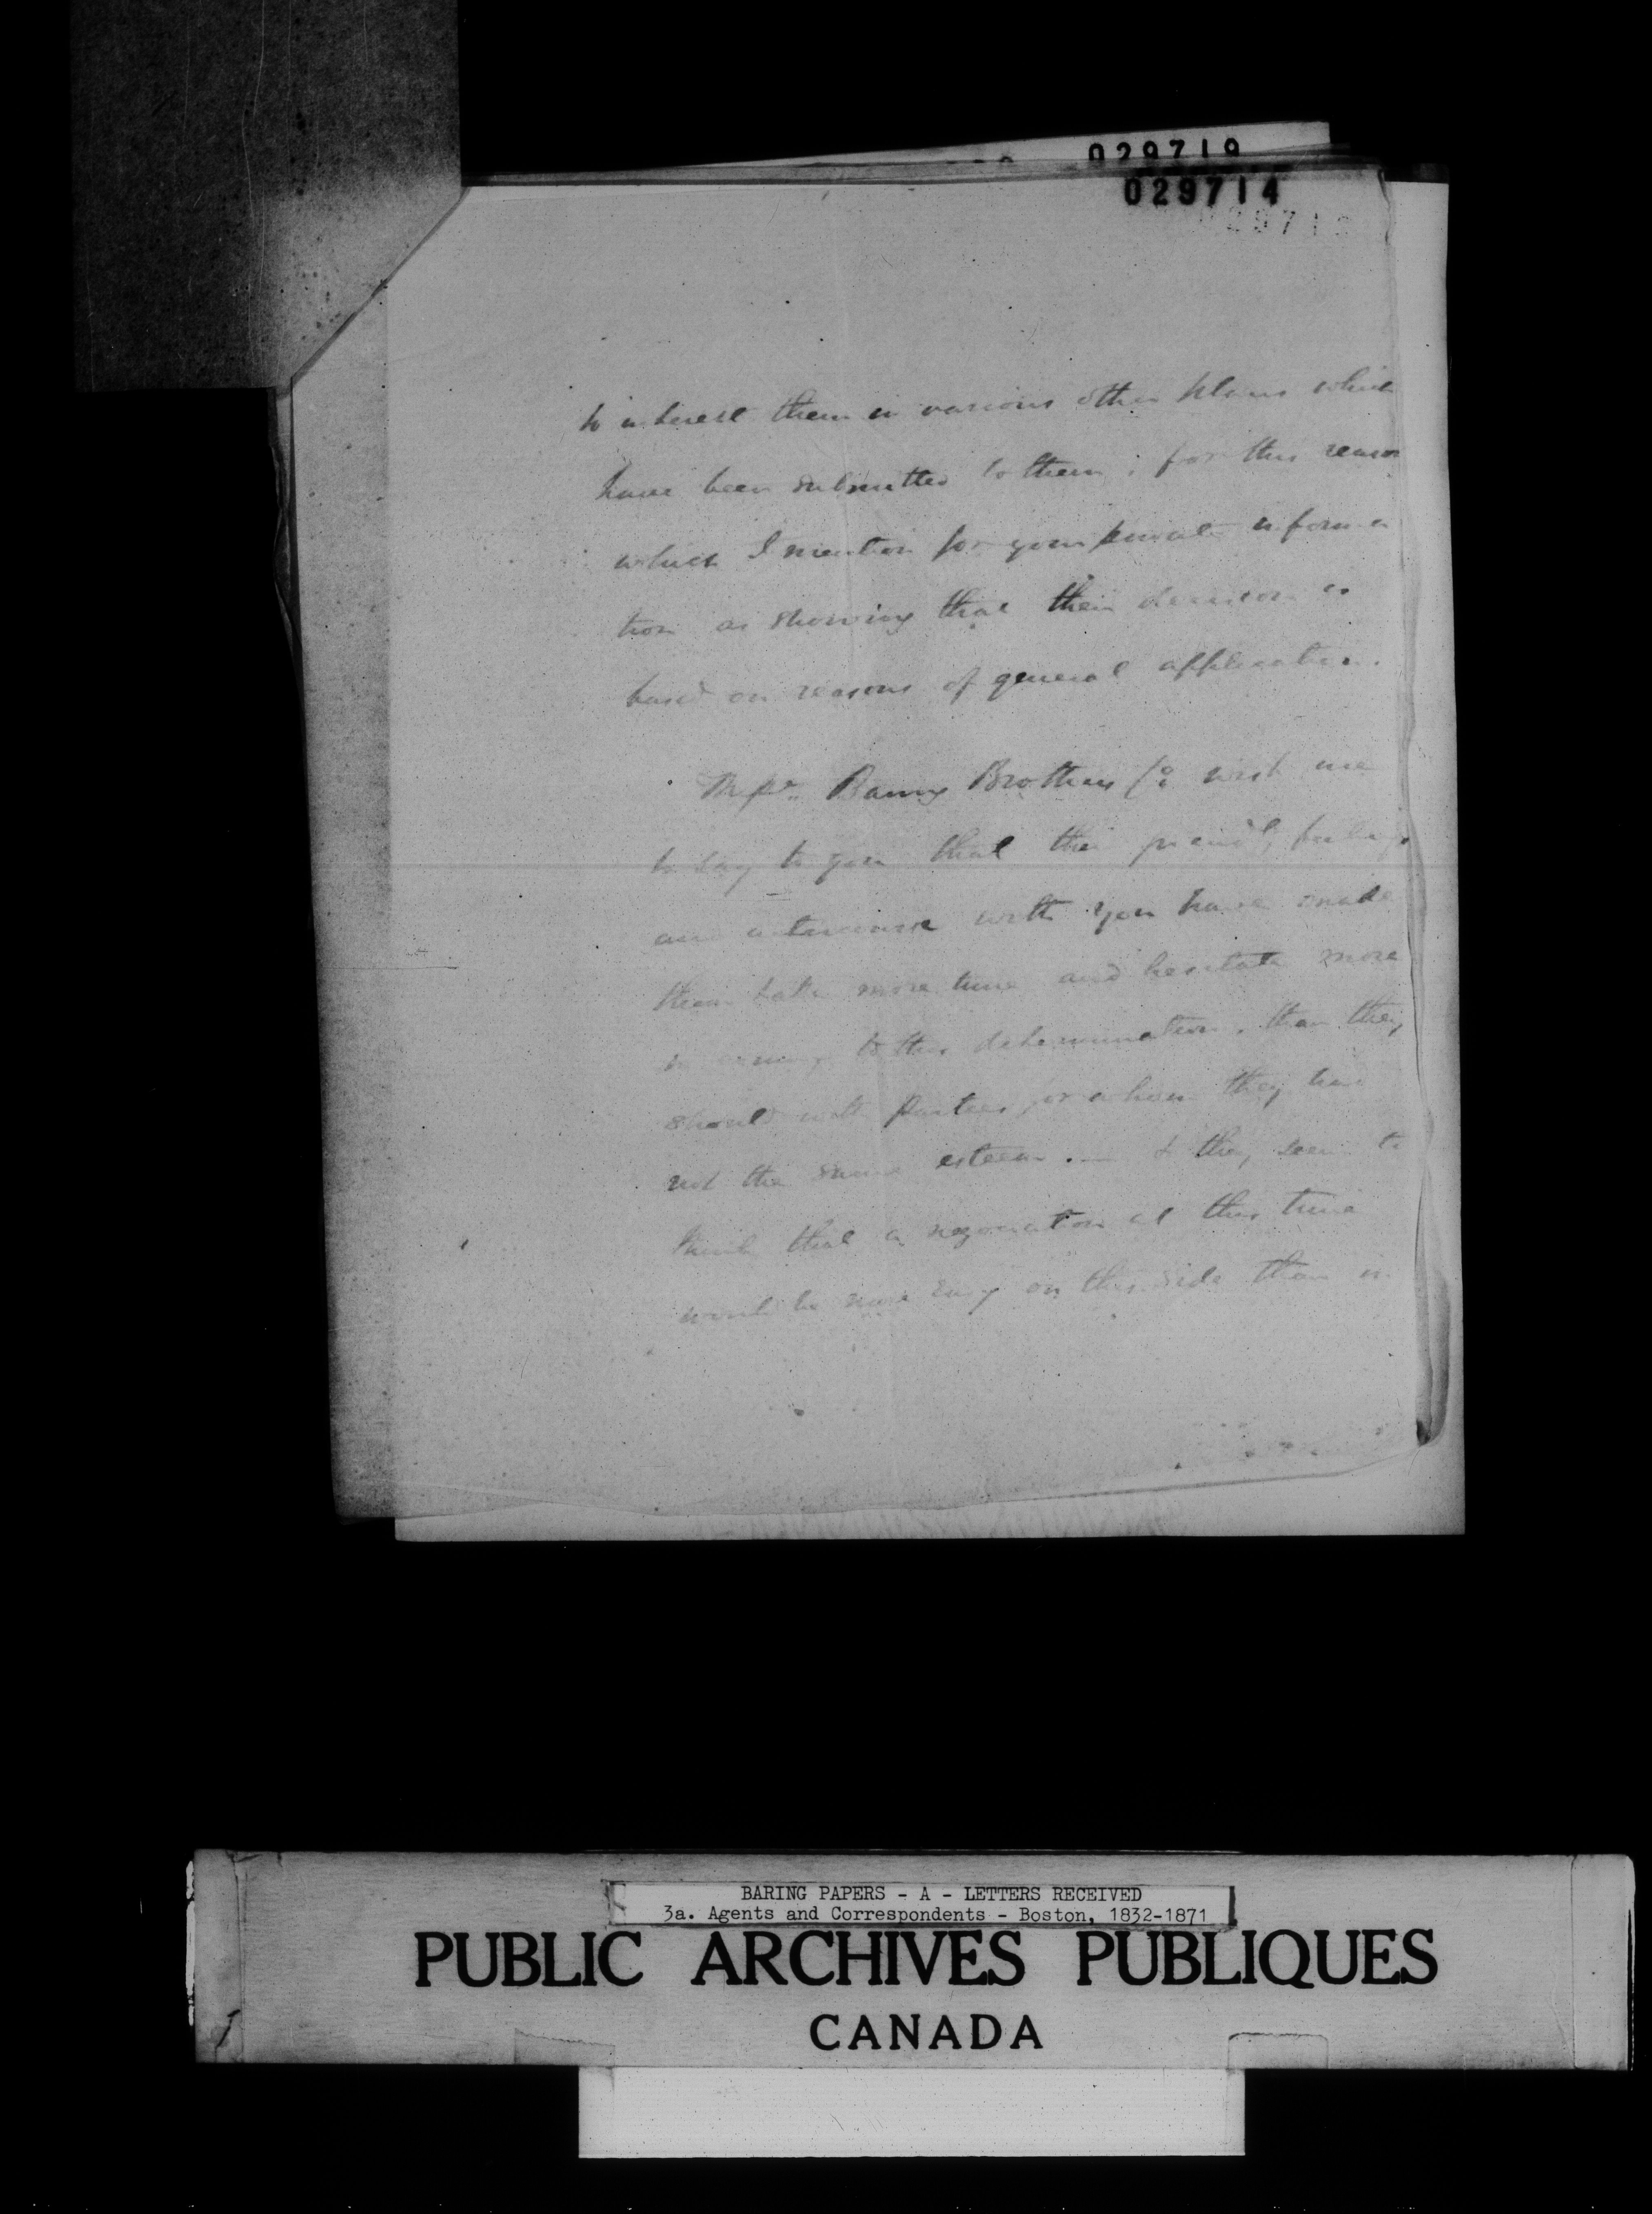 029719
029714
to interest them in various other plans which
have been submitted to them; for this reason
which I mention for your private informa
tion as showing that their decision is
based on reasons of general application.
Messrs Baring Brothers Co wish me
to say to you that the friendly feelings
and intercourse with you have made
them take more time and hesitate more
in coming to this determination, than they
should with parties for whom they have
not the same esteem. — & they seem to
think that a negociation at this time
would be more easy on this side than in
BARING PAPERS - A - LETTERS RECEIVED
3a. Agents and Correspondents - Boston, 1832-1871
PUBLIC ARCHIVES PUBLIQUES
CANADA